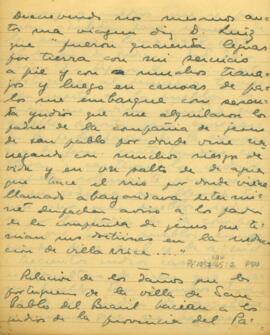 Prosiguiendo mi mesmos au-
to ma viagem diz D. Luiz
que fueron quarenta leguas
por tierra con mi servicio
a pie y con muchos traba-
jos y luego en canoas de pa-
lo me embarque con sesenta
yndios que me alquilaron los
padres de la compañia de jesus
de san pablo por donde vine na-
vegando con muchos riesgo de
vida y en un salto de de agua
que hace el rio por donde vine
llamado abayandava determi-
ne despachar aviso a los padres
de la compañia de jesus que te-
nian sus doctrinas en la reduc-
cion de villa rica..."
Relacion de los daños que los
portugueses de la villa de San
Pablo del Brasil hacian a los
yndios de la provincia del Pa-